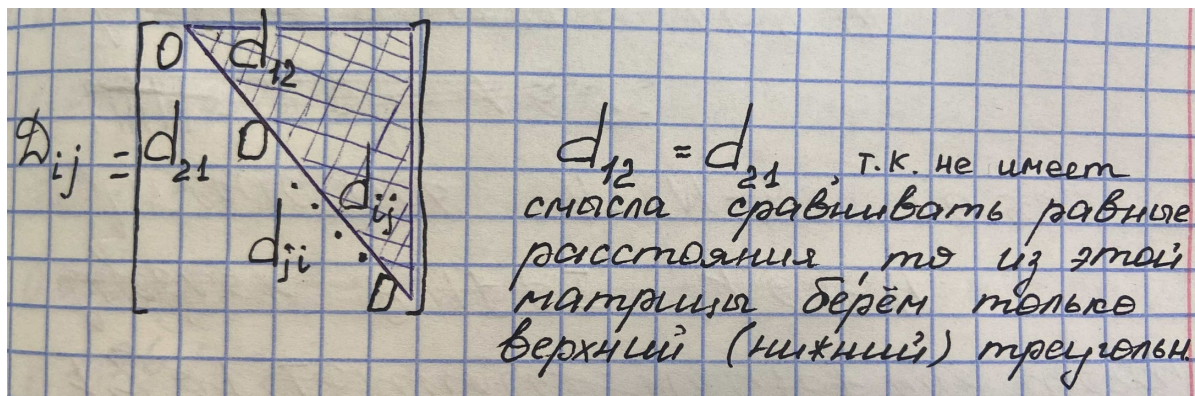 0 d₁₂
D_ij = d₂₁ 0 d_ij
d_ji
0
d₁₂ = d₂₁, т.к. не имеет
смысла сравнивать равные
расстояния, то из этой
матрицы берём только
верхний (нижний) треугольн.